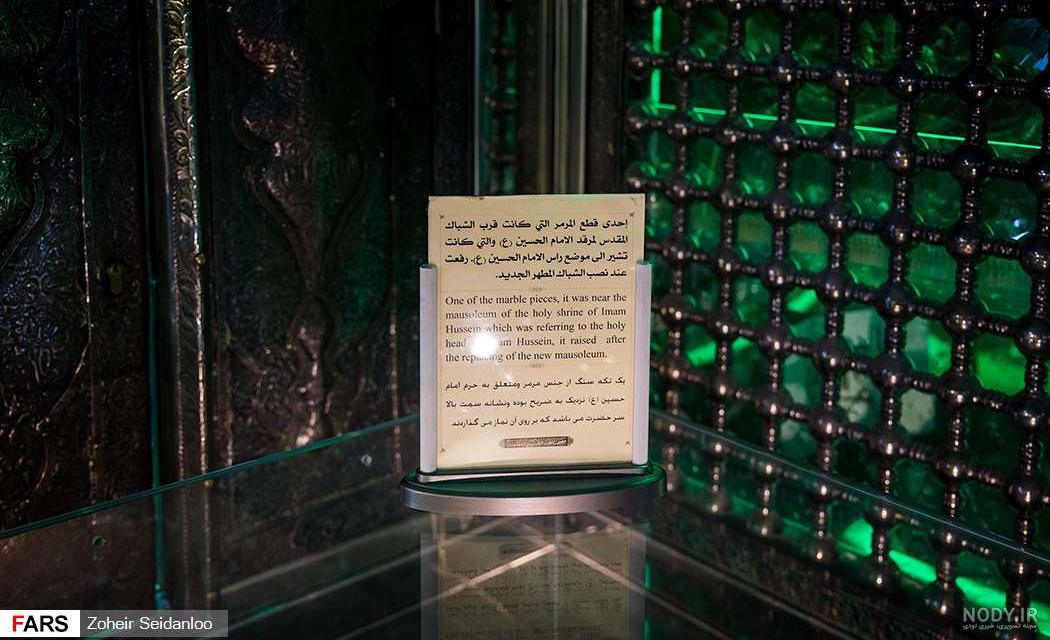 إحدى قطع المرمر التي كانت قرب الشباك
المقدس لمرقد الامام الحسين (ع) والتي كانت
تشير الى موضع راس الامام الحسين (ع)، رفعت
عند نصب الشباك المطهر الجديد.
One of the marble pieces, it was near the
mausoleum of the holy shrine of Imam
Hussein which was referring to the holy
head Hussein, it raised after
the replacing of the new mausoleum.
یک تکه سنگ از جنس مرمر ومتعلق به حرم امام
حسین (ع) نزدیک به ضریح بوده ونشانه سمت بالا
سر حضرت می باشد که بر روی آن نماز می گذاردند.
FARS Zoheir Seidanloo
NODY.IR
مجله تصویری، خبری نودی